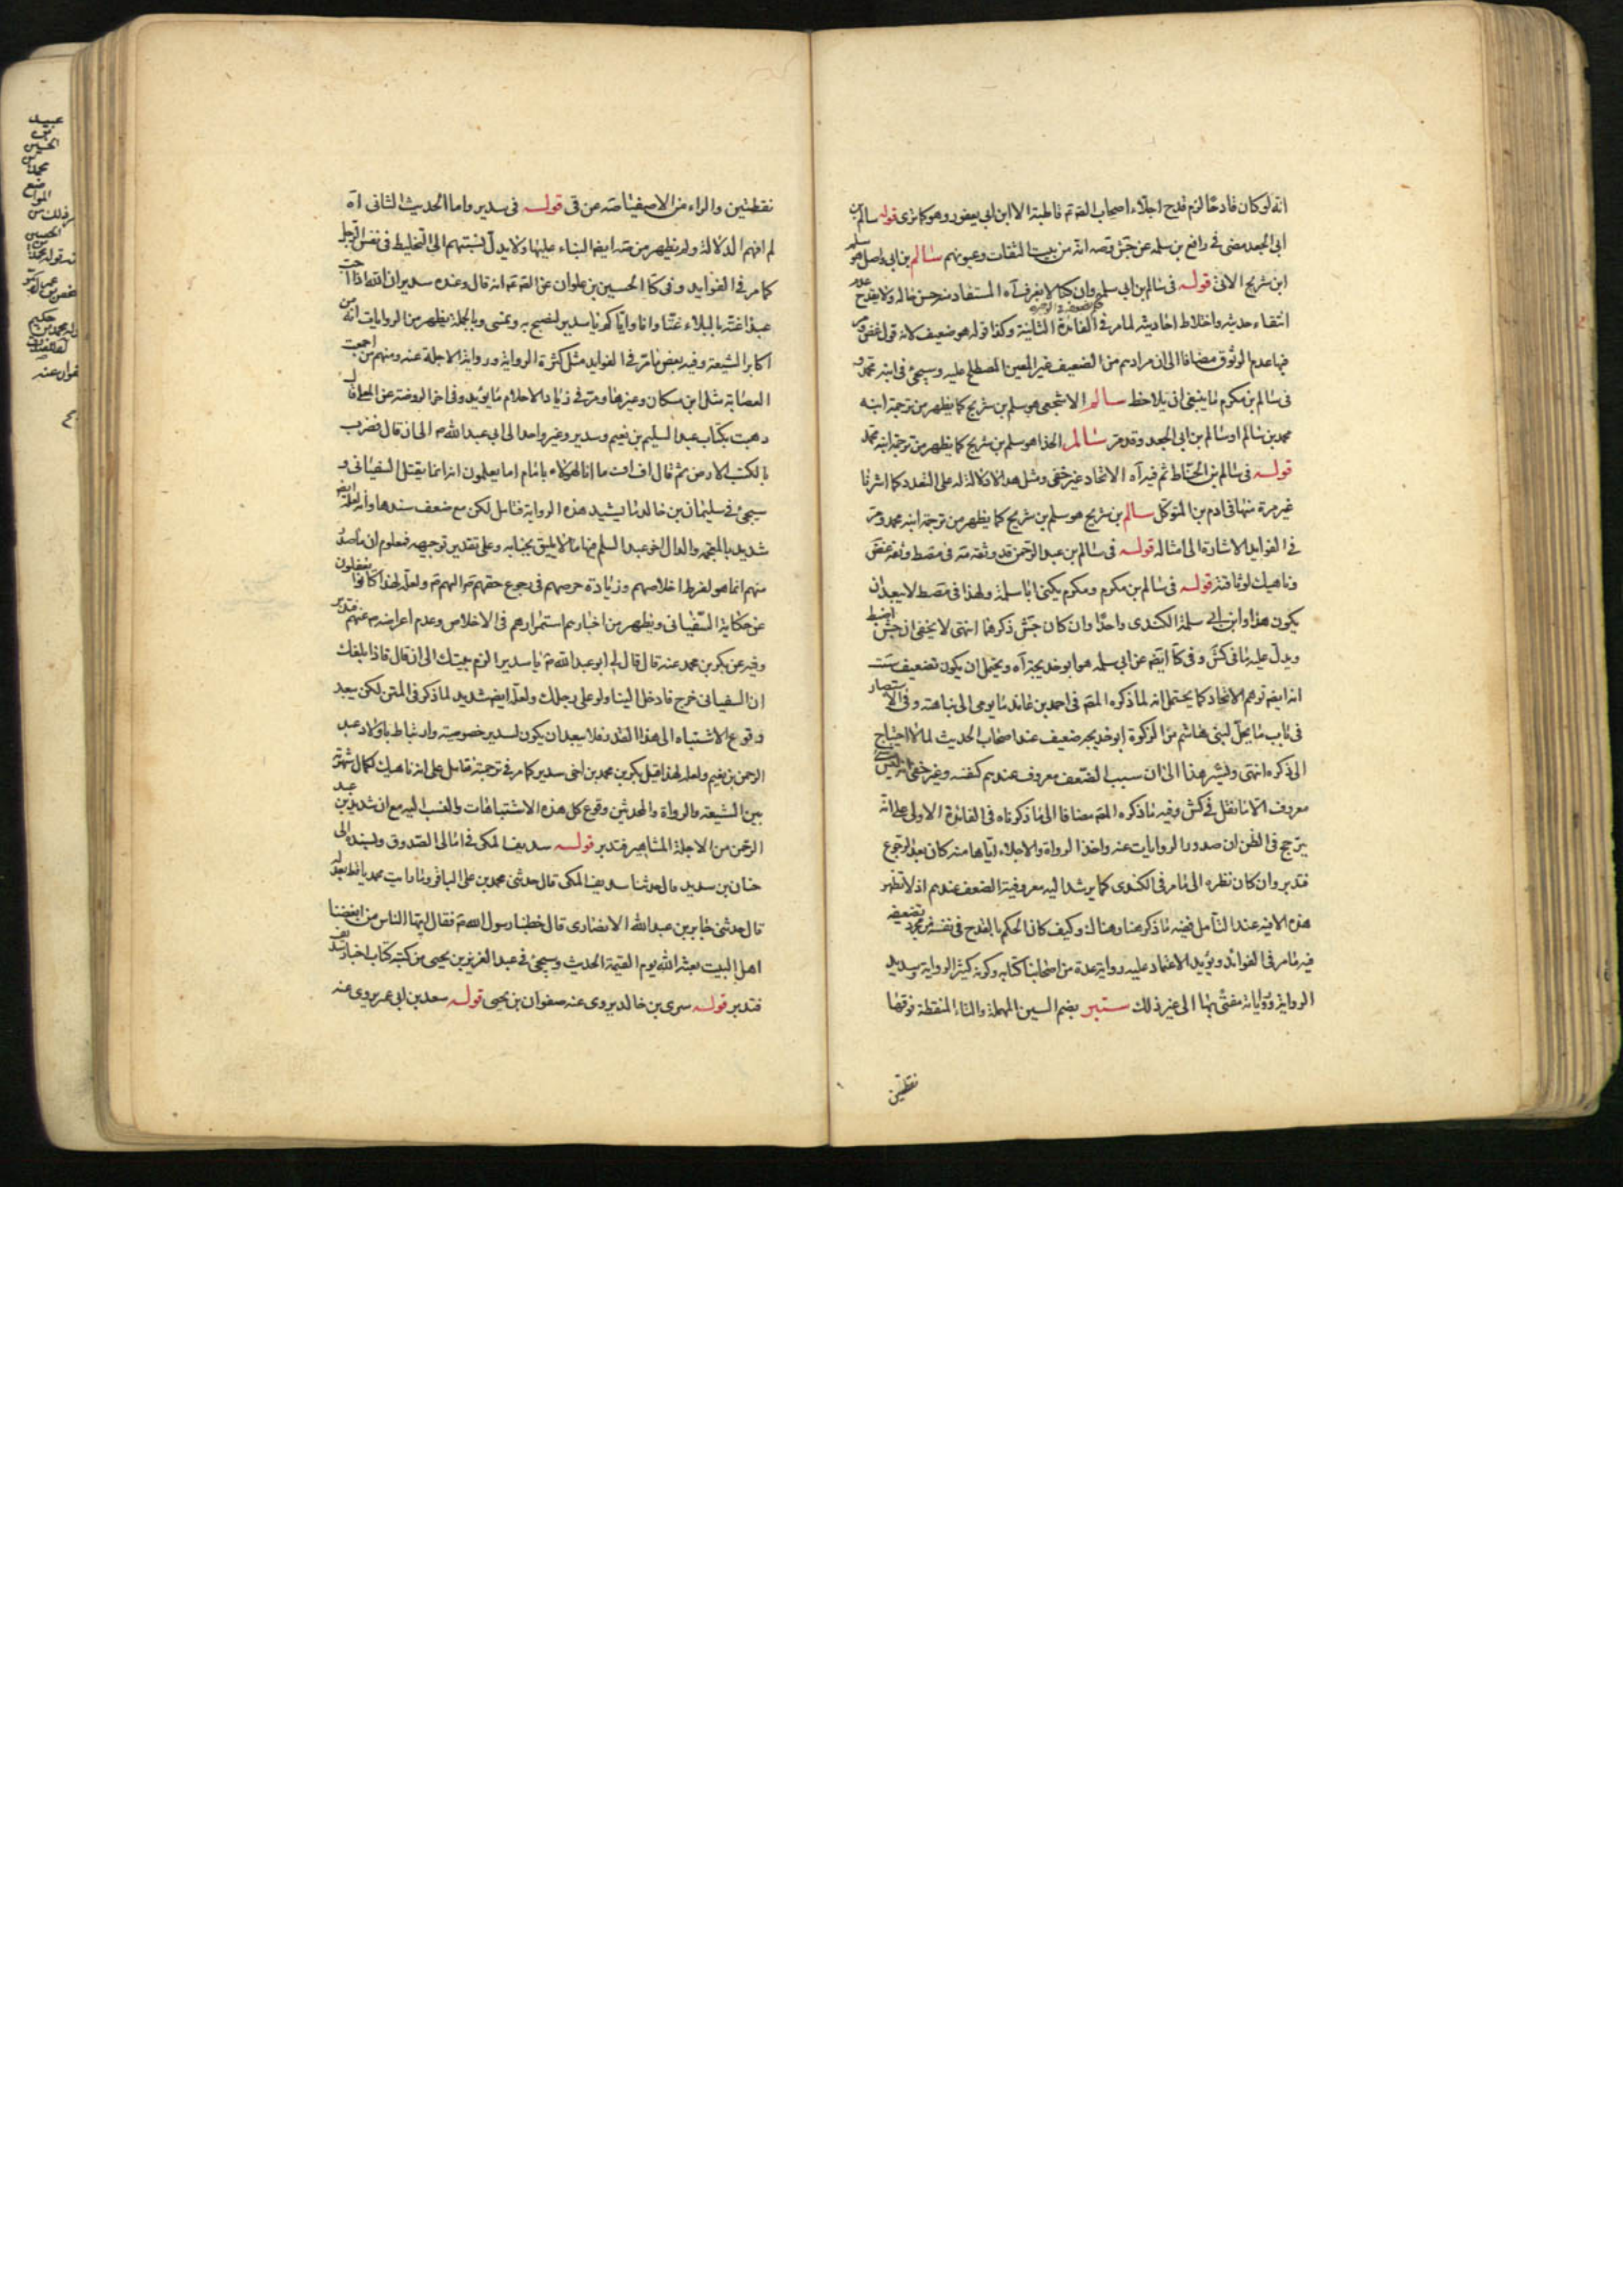 انه لو كان قادحا لزم قدح اجلاء اصحاب الصم قاطبة الا ابن ابى يعفور وهو كما ترى قوله سالم بن
ابى الجعد مضى فى رافع بن سلمه عن جش وصه انه من بيت الثقات وعيونهم سالم بن ابى واصل هو سلم
ابن شريح الاتى قوله فى سالم بن ابى سلمه وان كنا لا نعرف آه المستفاد منه حسن حاله ولا يقدح عدم
انتقاء حديثه واختلاط احاديثه لما مر فى الفائدة الثانية وكذا قوله هو ضعيف لانه قول غض
فيها عدم الوثوق مضافا الى ان مرادهم من الضعيف غير المعين المصطلح عليه وسيجئ فى ابنه محمد و
فى سالم بن مكرم ما ينبغى ان يلاحظ سالم الاشجعى هو سلم بن شريح كما يظهر من ترجمة ابنه
محمد بن سالم او سالم بن ابى الجعد وقد مر سالم الحذا هو سلم بن شريح كما يظهر من ترجمة ابنه محمد
قوله فى سالم بن الحناط ثم فيه آه الاتحاد غير خفى ومثل هذا لا دلالة له على التعدد كما اشرنا
غير مرة منها فى ادم بن المتوكل سالم بن شريح هو سلم بن شريح كما يظهر من ترجمة ابنه محمد ومر
فى الفوايد الاشارة الى امثاله قوله فى سالم بن عبد الرحمن قد وثقه مه فى مصط وثقه غض
وناهيك لوثاقته قوله فى سالم بن مكرم ومكرم يكنى ابا سلمة ولهذا فى مصط لا يبعد ان
يكون هذا وابن ابى سلمة الكندى واحدا وان كان جش ذكرهما انتهى لا يخفى ان جش اضبط
ويدل عليه ما فى كش وفى كا ايضه عن ابى سلمه هو ابو خديجة آه ويحتمل ان يكون تضعيف ست
انه ايضه توهم الاتحاد كما يحتمل انه لما ذكره المصه فى احمد بن عائذ ما يومى الى نباهته وفى الاستبصار
فى باب ما يحل لبنى هاشم من الزكوة ابو خديجه ضعيف عند اصحاب الحديث لما لا احتياج
الى ذكره انتهى ويشير هذا الى ان سبب الضعف معروف عندهم كنفسه وغير خفى انه ليس
معروف الا ما نقل فى كش وفيه ما ذكره المصه مضافا الى ما ذكرناه فى الفائدة الاولى على انه
يترجح فى الظن ان صدور الروايات عنه واخذ الرواة والاجلاء اياها منه كان بعد الرجوع
فتدبر وان كان نظره الى ما مر فى الكندى كما يرشد اليه معروفية الضعف عندهم اذ لا تظهر
هذه الا فيه عند التأمل ففيه ما ذكر هنا وهناك وكيف كان الحكم بالقدح فى نفسه من مجرد تضعيفه
فيه ما مر فى الفوائد ويؤيد الاعتماد عليه رواية عدة من اصحابنا كتابه وكونه كثير الرواية وسديد
الرواية ورواياته مفتى بها الى غير ذلك ستير بضم السين المهملة والتاء المنقطة فوقها
نقطتين
نقطتين والراء من الاصفياء صه عن قى قوله فى سدير واما الحديث الثانى آه
لم افهم الدلالة ولم يظهر من صه ايضا البناء عليها ولا يدل نسبتهم الى التخليط فى نفس الرجل
كما مر فى الفوايد وفى كا الحسين بن علوان عن الصه انه قال وعنده سدير ان الله اذا احب
عبدا غته بالبلاء غتا وانا واياكم يا سدير لنصبح به ونمسى وبالجملة يظهر من الروايات انه من
اكابر الشيعة وفيه بعض ما مر فى الفوايد مثل كثرة الرواية ورواية الاجلة عنه ومنهم من اجمعت
العصابة مثل ابن مسكان وغيرها ومر فى زياد الاحلام ما يؤيد وفى اخر الروضة عن المعلى قال
ذهبت بكتاب عبد السليم بن نعيم وسدير وغير واحد الى ابى عبد الله م الى ان قال فضرب
بالكتب الارض ثم قال اف اف ما انا لهؤلاء بامام اما يعلمون انه انما يقتل السفيانى و
سيجئ فى سليمان بن خالد ما يشيد هذه الرواية فتامل لكن مع ضعف سندها وانه لعله ايضه
شديد بالمعجمه والدال اخو عبد السلم فيها ما لا يليق بجنابه وعلى تقدير توجيهه فمعلوم ان ما صدر
منهم انما هو لفرط اخلاصهم وزيادة حرصهم فى رجوع حقهم اليهم م ولعله لهذا كانوا يغفلون
عن حكاية السفيانى ويظهر من اخبارهم استمرارهم فى الاخلاص وعدم اعراضه م عنهم فتدبر
وفيه عن بكر بن محمد عنه قال قال لى ابو عبد الله م يا سدير الزم بيتك الى ان قال فاذا بلغك
ان السفيانى خرج فادخل الينا ولو على رجلك ولعله ايضه شديد لما ذكر فى المتن لكن يبعد
وقوع الاشتباه الى هذا القدر فلا يبعد ان يكون لسدير خصوصية وارتباط باولاد عبد
الرحمن بن نعيم ولعله لهذا قيل بكر بن محمد بن اخى سدير كما مر فى ترجمته فتامل على انه ناهيك لكمال شهرته
بين الشيعه والرواة والمحدثين وقوع كل هذه الاشتباهات والنسب اليه مع ان شديد بن عبد
الرحمن من الاجلة المشاهير فتدبر قوله سديف المكى فى امالى الصدوق وبسنده الى
حنان بن سدير قال حدثنا سديف المكى قال حدثنى محمد بن على الباقر وما رايت محمديا قط يعدله
قال حدثنى جابر بن عبد الله الانصارى قال خطبنا رسول الله م فقال ايها الناس من ابغضنا
اهل البيت بعثه الله يوم القيمة الحديث وسيجئ فى عبد العزيز بن يحيى من كتبه كتاب اخبار سديف
فتدبر قوله سرى بن خالد يروى عنه صفوان بن يحيى قوله سعد بن ابى عمر يروى عنه
عبيد
بن
الحسين